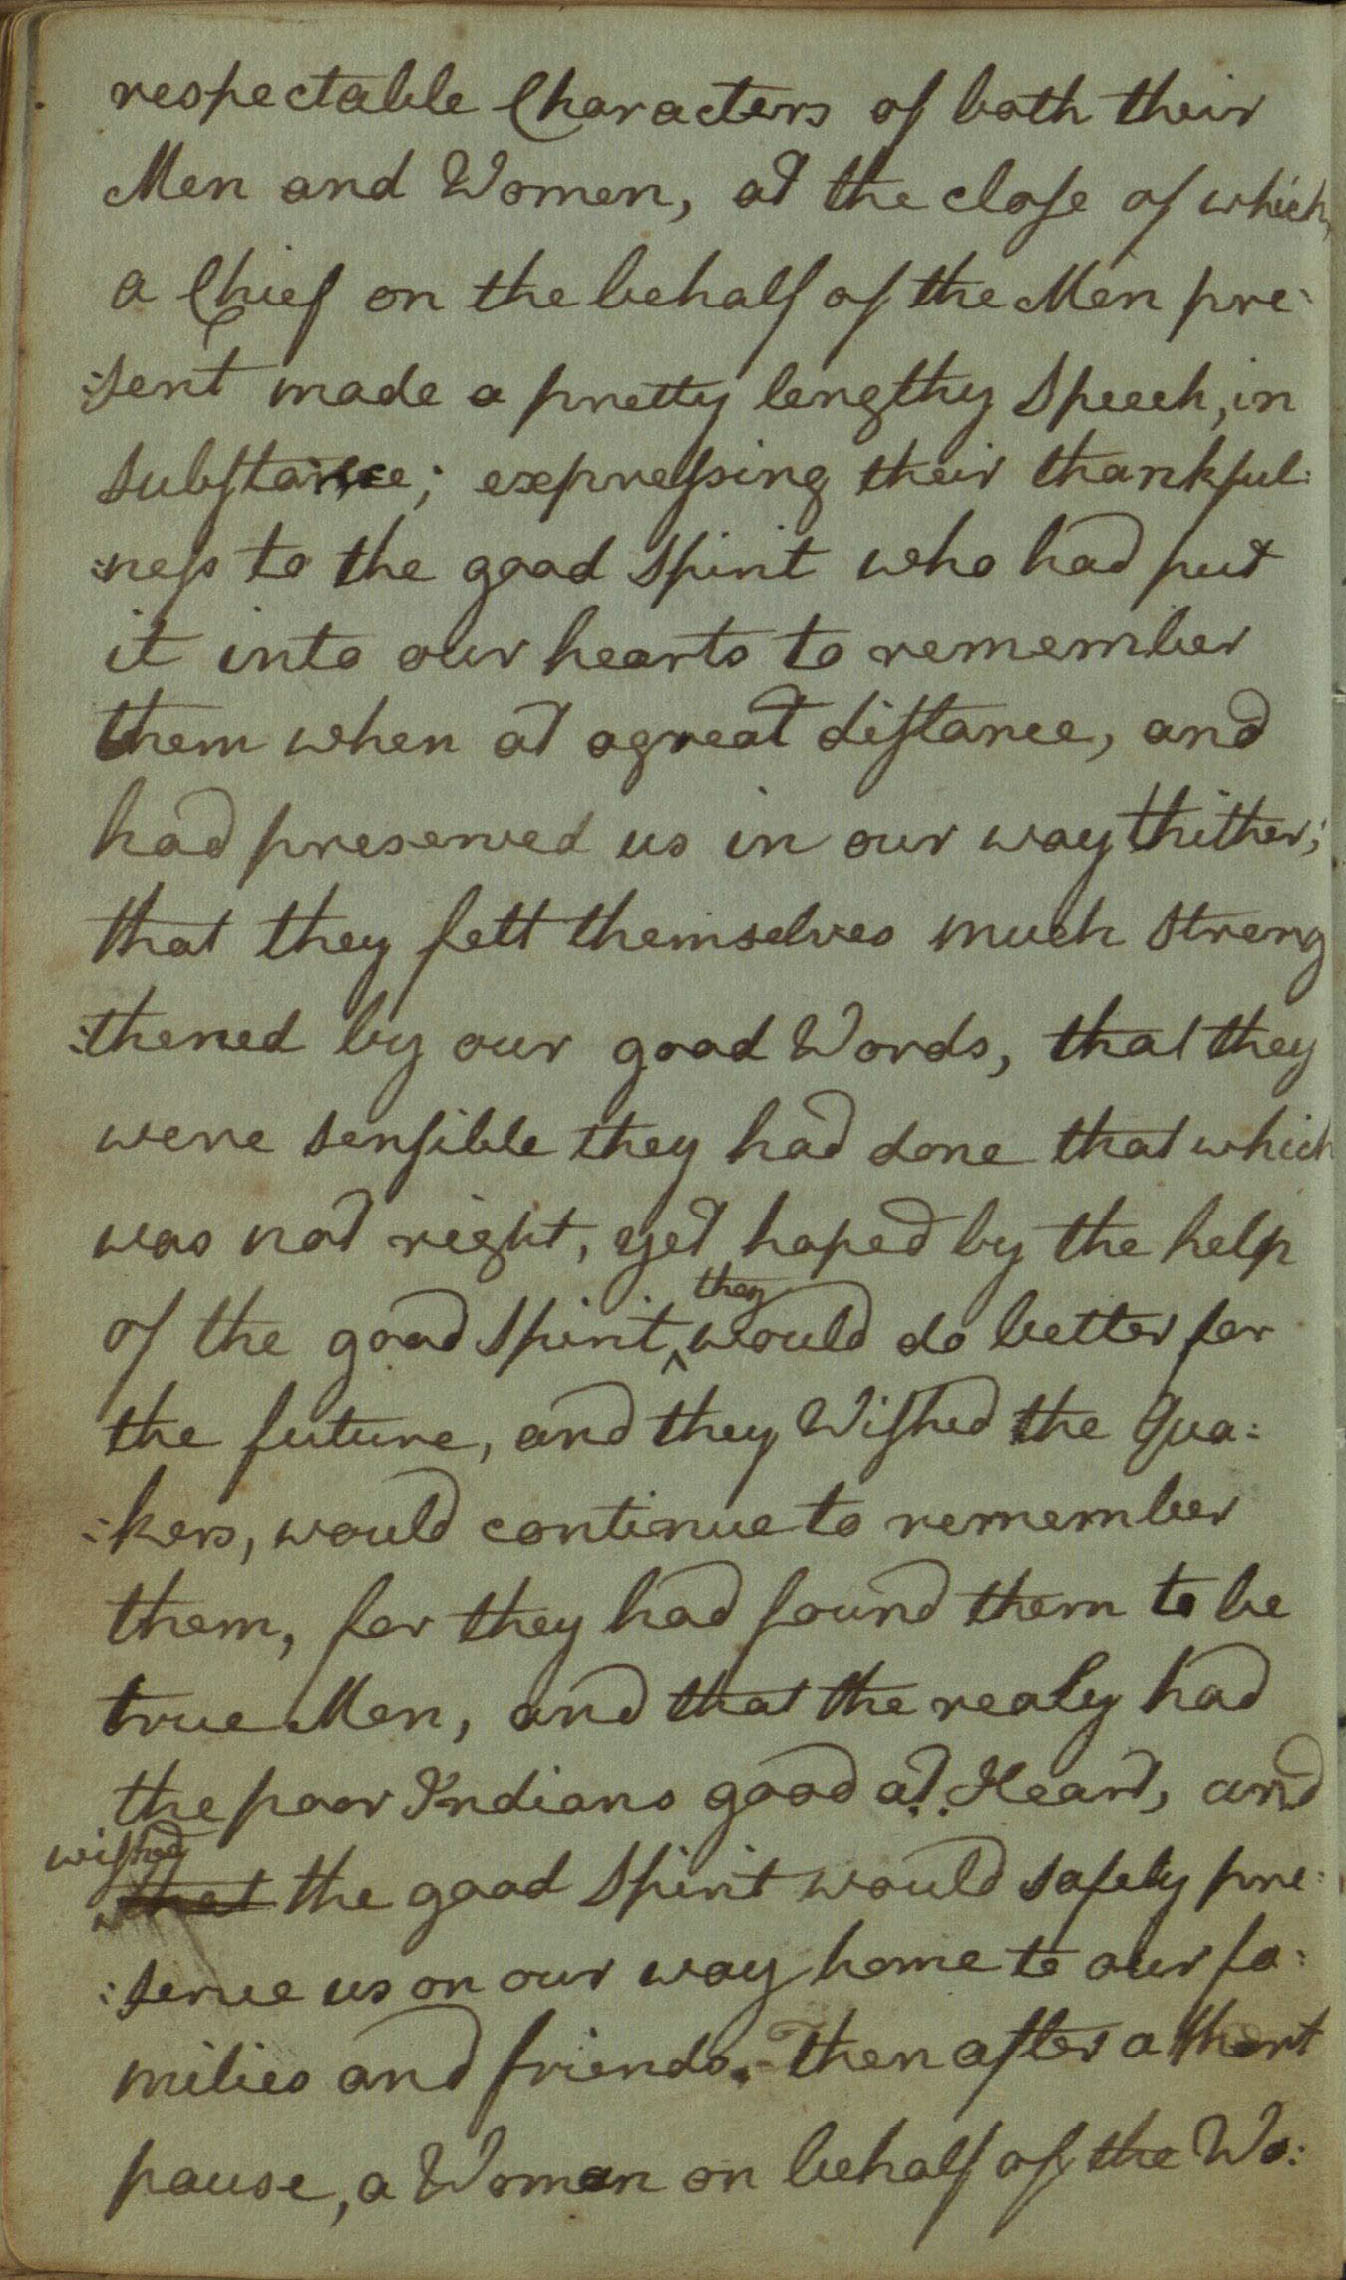 respectable Characters of both their
Men and Women, at the close of which,
a Chief on the behalf of the Men pre:
:sent made a pretty lengthy Speech, in
substance; expressing their thankful:
:ness to the good Spirit who had put
it into our hearts to remember
them when at a great distance, and
had preserved us in our way thither;
that they felt themselves much Streng
:thened by our good Words, that they
were sensible they had done that which
was not right, yet hoped by the help
of the good Spirit ^they would do better for
the future, and they Wished the Qua:
:kers, would continue to remember
them, for they had found them to be
true Men, and that the realy had
the poor Indians good at Heart, and
wished
that the good Spirit would safely pre:
:serve us on our way home to our fa:
milies and friends. Then after a Short
pause, a Woman on behalf of the Wo: